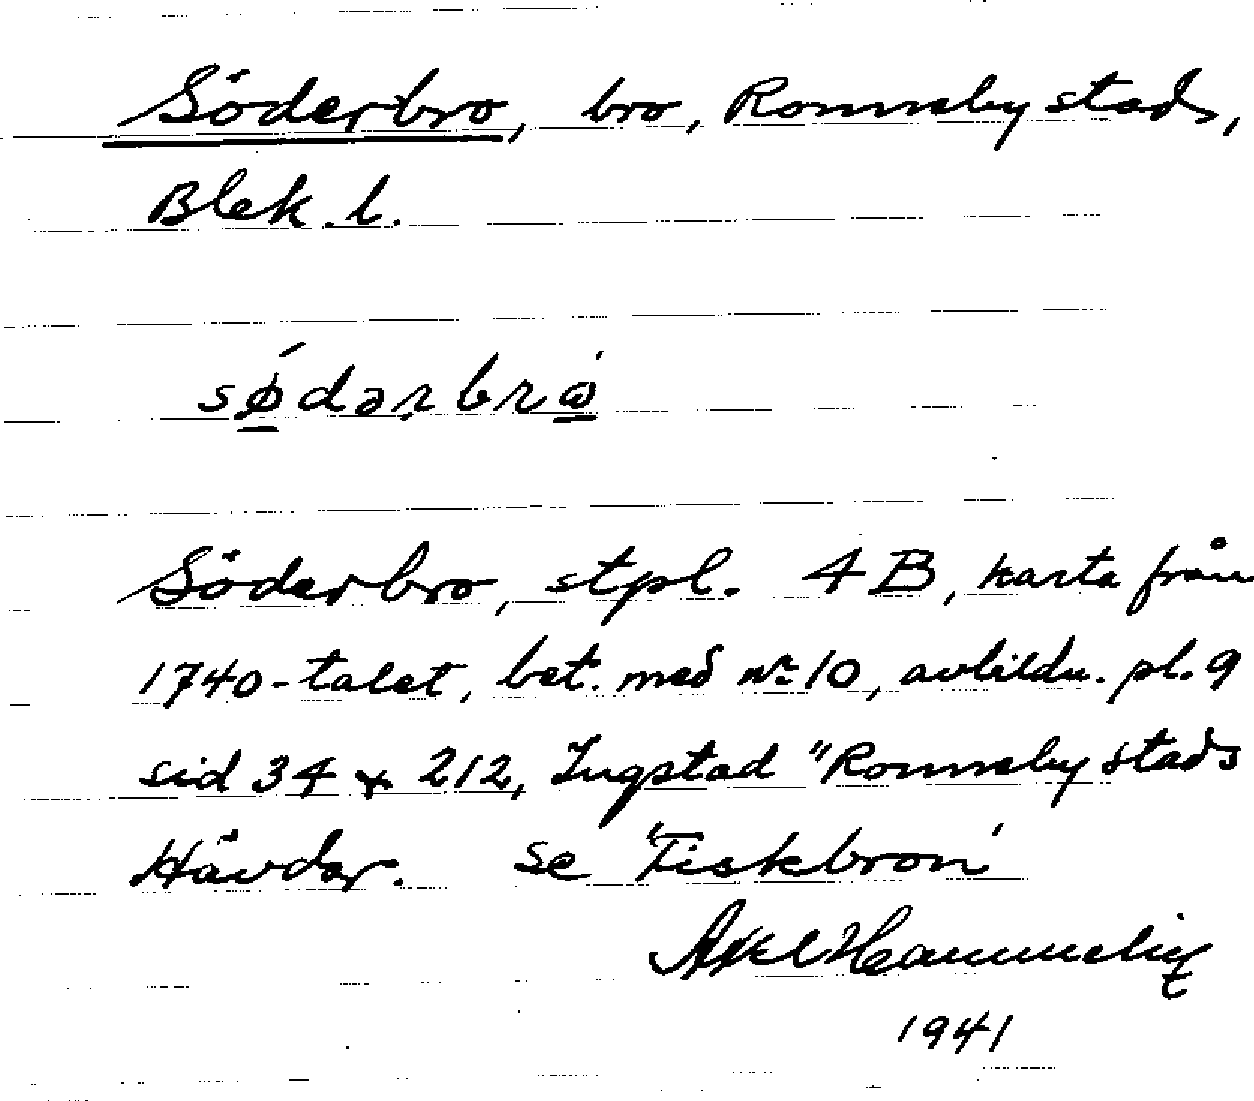 Söderbro, bro, Ronneby stads,
Blek. l.
sǿ̱dərbrώ̱
Söderbro, stpl. 4 B, karta från
1740-talet, bet. med nr 10, avbildn. pl. 9
sid 34 & 212, Ingstad "Ronneby stads
Hävdar. Se "Fiskbron"
Axel
1941